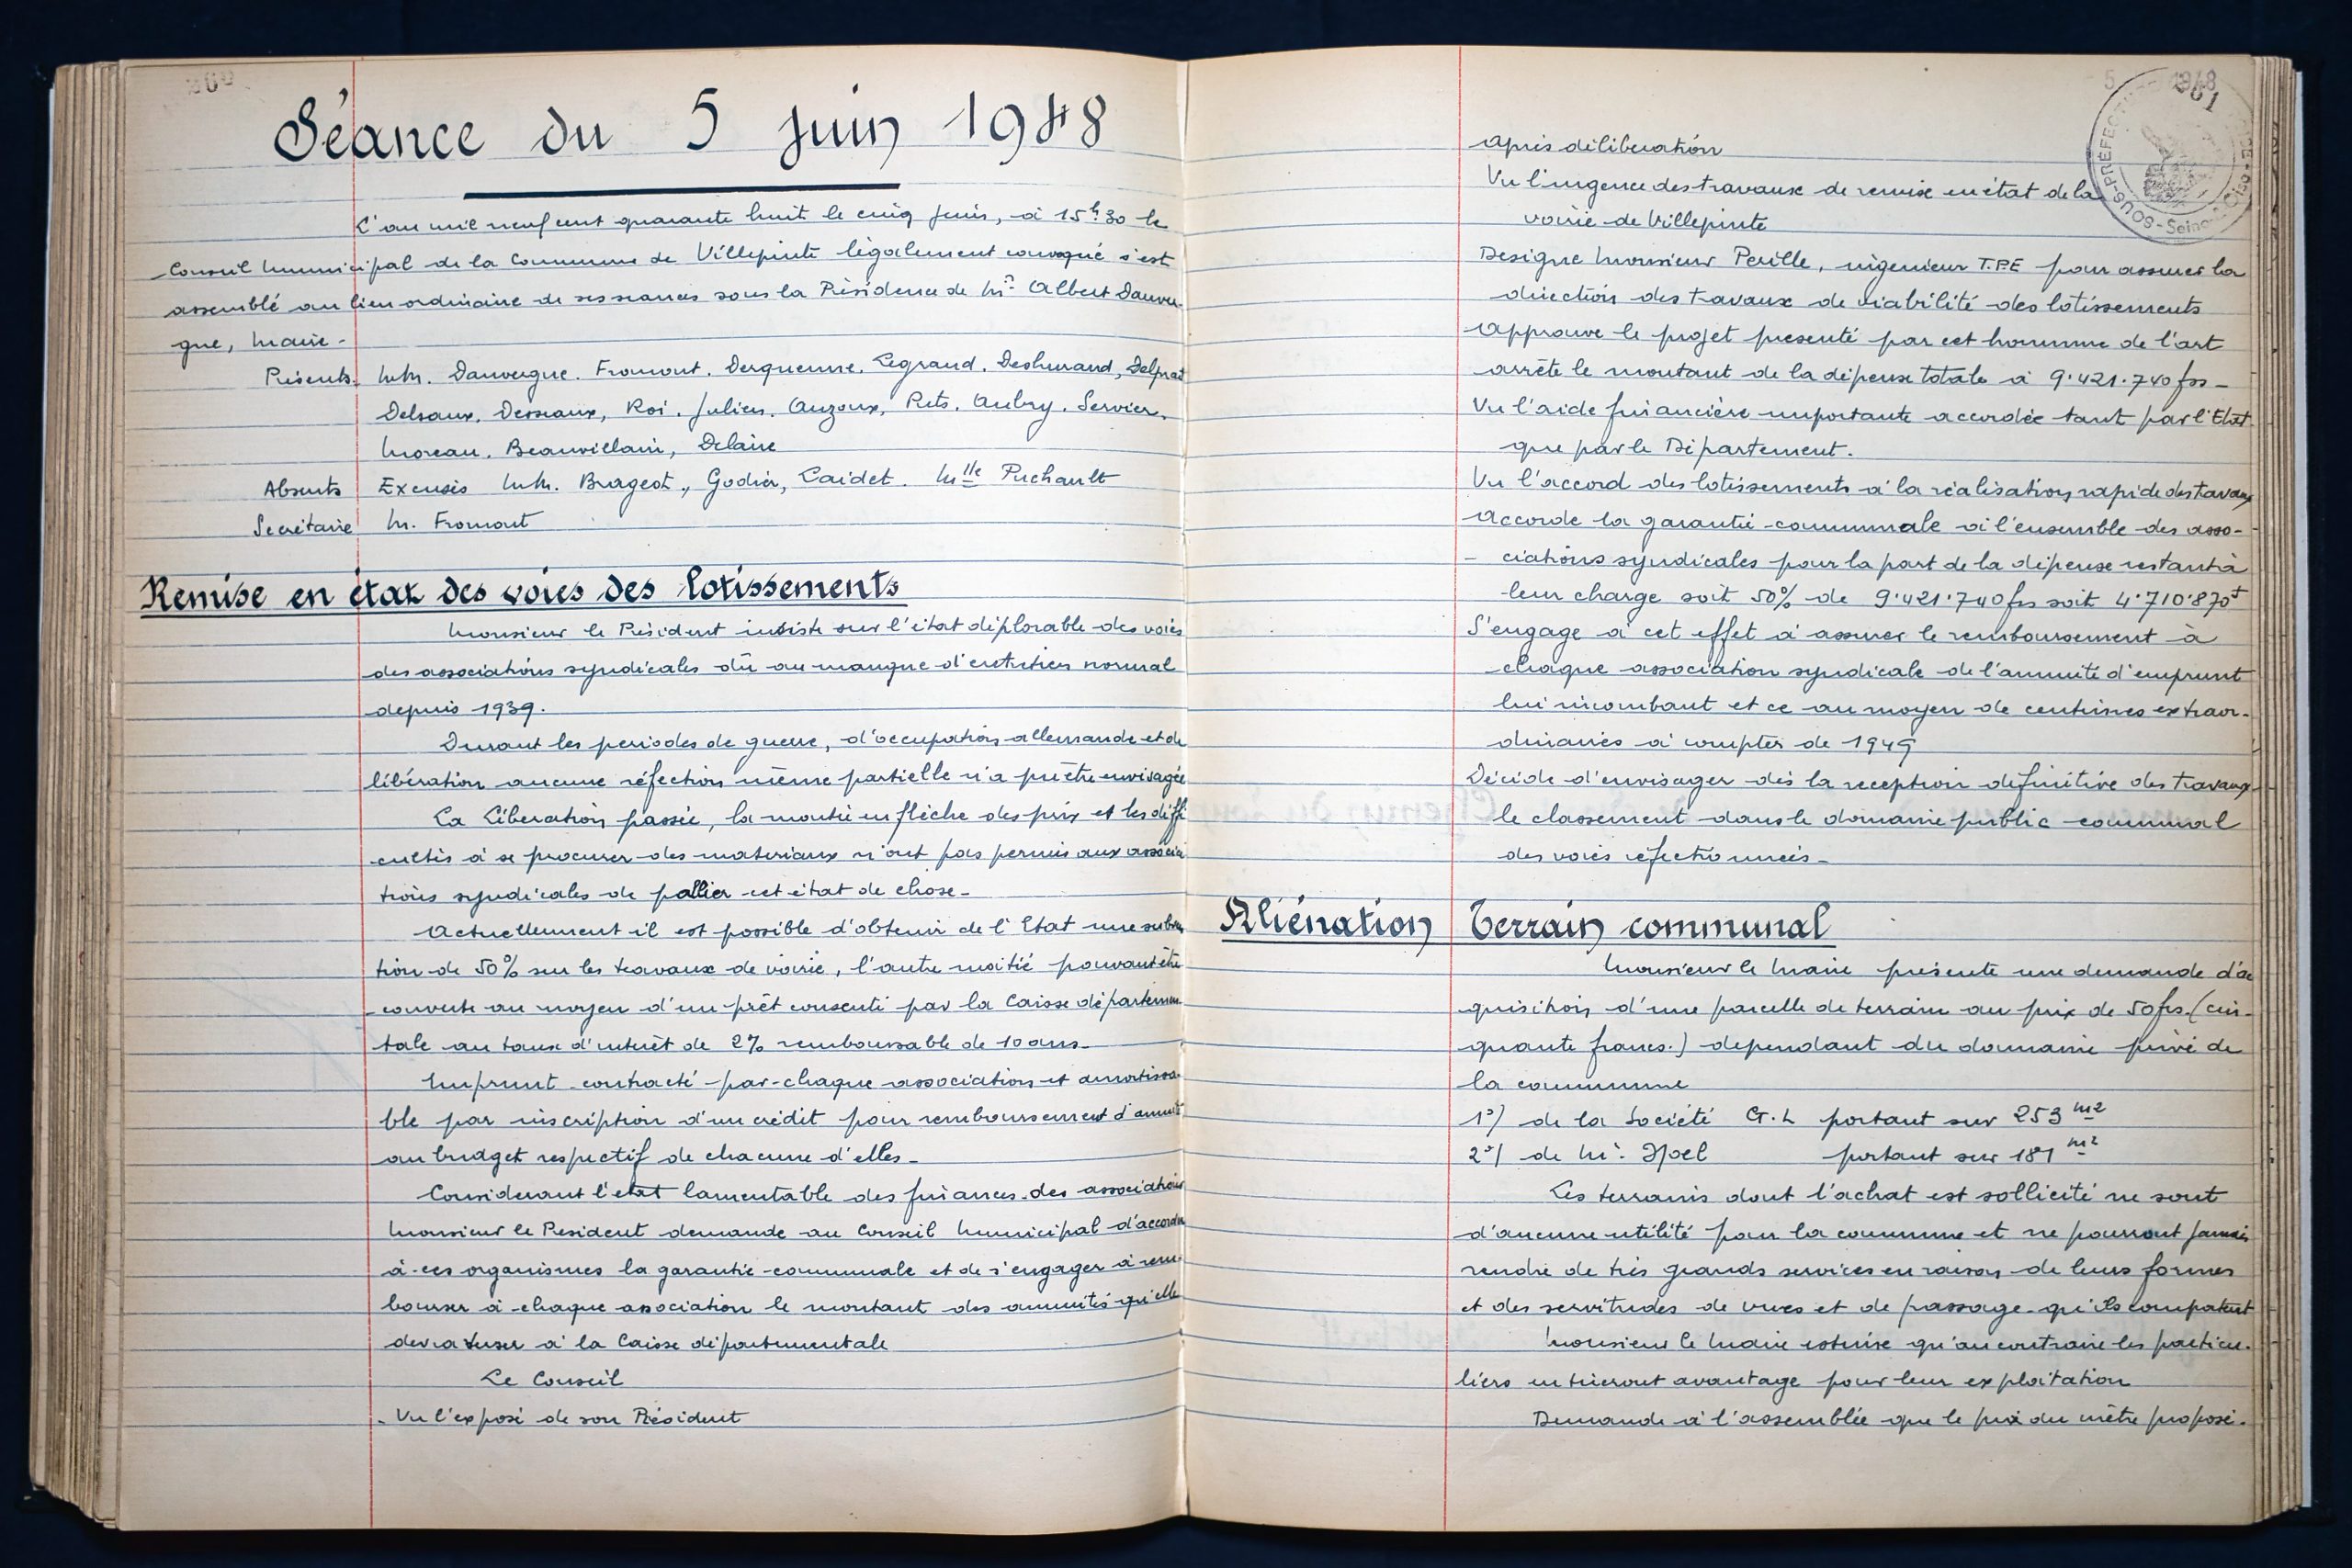 Séance du 5 juin 1948
L'an mil neuf cent quarante huit le cinq juin, à 15h30 le
Conseil Municipal de la Commune de Villepinte légalement convoqué s'est
assemblé au lieu ordinaire de ses séances sous la Présidence de Mr Albert Dauver-
gne, Maire -
Présents. MM. Dauvergne. Fromont. Derquenne. Legrand. Deshurand, Delprat
Delsaux. Desseaux, Roi. Julien. Auzoux, Pets. Aubry. Servier.
Moreau. Beauvillain, Delaire
Absents Excusés MM. Brageot., Godier, Caidet. Mlle Puchault
Secrétaire M. Fromont
Remise en état des voies des lotissements
Monsieur le Président insiste sur l'état déplorable des voies
des associations syndicales dû au manque d'entretien normal
depuis 1939.
Durant les periodes de guerre, d'occupation allemande et de
libération aucune réfection même partielle n'a pu être envisagée
La Libération passée, la montée en flèche des prix et les diffi
cultés à se procurer des materiaux n'ont pas permis aux associa
tions syndicales de pallier cet état de chose -
Actuellement il est possible d'obtenir de l'Etat une subven
tion de 50% sur les travaux de voirie, l'autre moitié pouvant être
couverte au moyen d'un prêt consenti par la Caisse départemen
tale au taux d'intérêt de 2% remboursable de 10 ans -
Emprunt contracté par chaque association et amortissa
ble par inscription d'un crédit pour remboursement d'annuité
au budget respectif de chacune d'elles -
Considerant l'etat lamentable des finances des associations
Monsieur le President demande au Conseil Municipal d'accorder
à ces organismes la garantie communale et de s'engager à rem
bourser à chaque association le montant des annuités qu'elle
devra verser à la Caisse départementale
Le Conseil
- Vu l'exposé de son Président
5 1948
201
SOUS-PRÉFECTURE
Seine-&-Oise
Après déliberation
Vu l'urgence des travaux de remise en état de la
voirie de Villepinte
Designe Monsieur Perille, ingenieur T.P.E pour assurer la
direction des travaux de viabilité des lotissements
Approuve le projet presenté par cet homme de l'art
arrête le montant de la dépense totale à 9.421.740 frs -
Vu l'aide financière importante accordée tant par l'Etat
que par le Département.
Vu l'accord des lotissements à la réalisation rapide des travaux
Accorde la garantie communale à l'ensemble des asso-
- ciations syndicales pour la part de la dépense restant à
leur charge soit 50% de 9.421.740 frs soit 4.710.870f
S'engage à cet effet à assurer le remboursement à
chaque association syndicale de l'annuité d'emprunt
lui incombant et ce au moyen de centimes extraor-
dinaires à compter de 1949
Décide d'envisager dès la reception définitive des travaux
le classement dans le domaine public communal
des voies réfectionnées -
Aliénation Terrain communal
Monsieur le Maire présente une demande d'ac
quisition d'une parcelle de terrain au prix de 50 frs. (cin-
quante francs.) dependant du domaine privé de
la commune
1°) de la Société G.L portant sur 253 m2
2°) de Mr. Hoel portant sur 181 m2
Les terrains dont l'achat est sollicité ne sont
d'aucune utilité pour la commune et ne pourront jamais
rendre de très grands services en raison de leurs formes
et des servitudes de vues et de passage qu'ils comportent
Monsieur le Maire estime qu'au contraire les particu-
liers en tireront avantage pour leur exploitation
Demande à l'assemblée que le prix du mètre proposé.